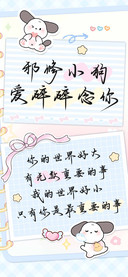 邪修小狗
爱碎碎念你
你的世界好大
有无数重要的事
我的世界好小
只有你是最重要的事